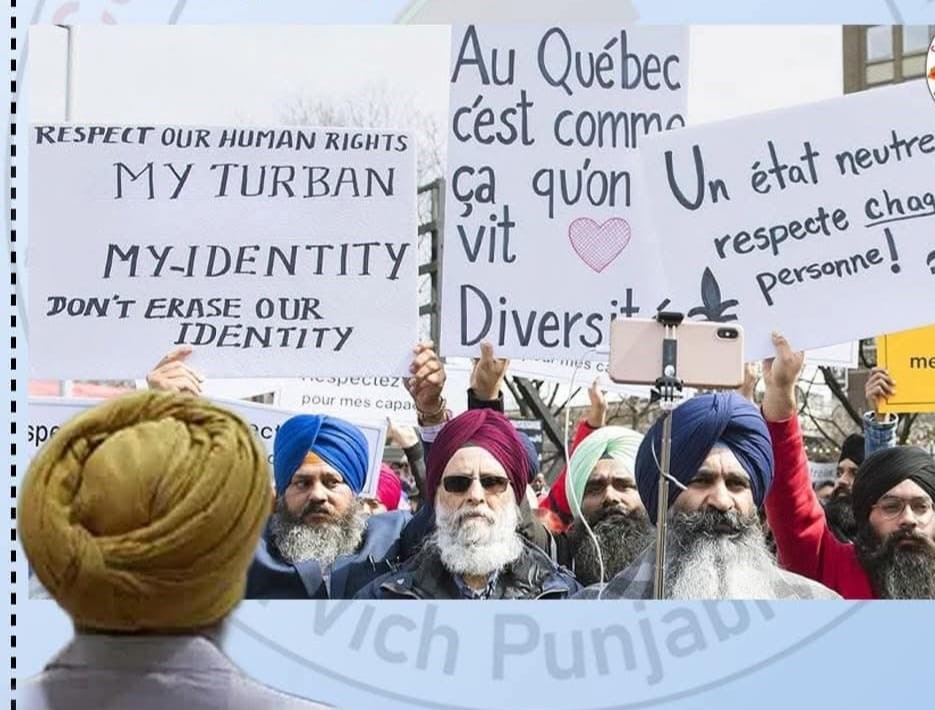 RESPECT OUR HUMAN RIGHTS
MY TURBAN
MY-IDENTITY
DON'T ERASE OUR
IDENTITY
Au Québec
c'est comme
ça qu'on
vit
Diversité
Un état neutre
respecte
personne!
pour mes
Respectez
pour mes
me
Vich Punjabi